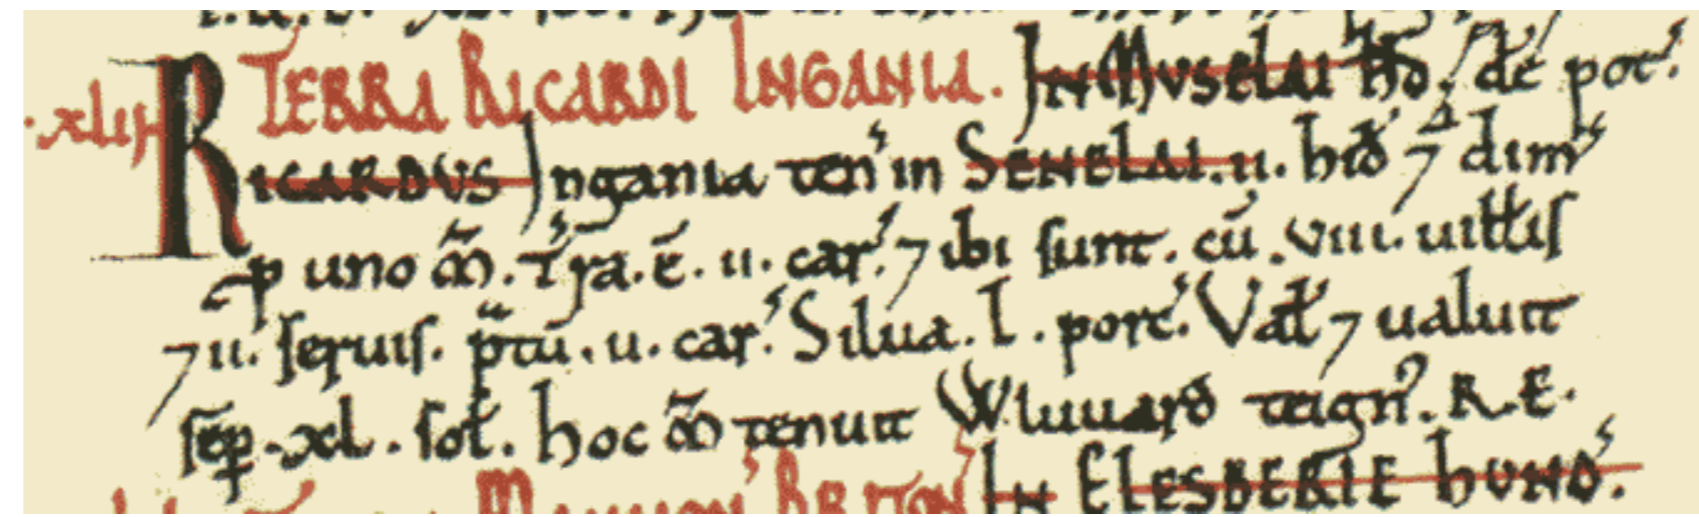 .xlii. TERRA RICARDI INGANIA. IN MUSELAI HD̄.
RICARDVS Ingania ten' in SENELAI. ii. hid' 7 dim'
p uno m̃. T'ra. ē. ii. car'. 7 ibi sunt. cū. viii. uiłłis
7 ii. seruis. p̃tū. ii. car'. Silua. l. porc'. Vał 7 ualuit
sēp. xl. soł. hoc m̃ tenuit Wluuard teign'. R. E.
IN ELESBERIE HVND'.